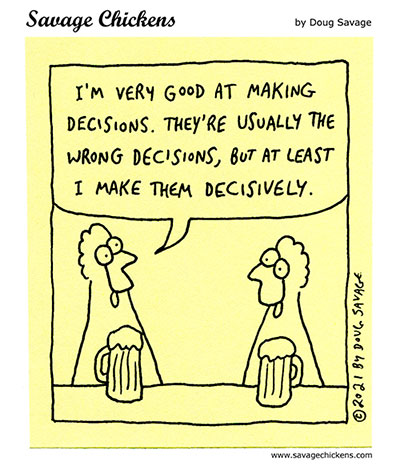 Savage Chickens
by Doug Savage
I'M VERY GOOD AT MAKING
DECISIONS. THEY'RE USUALLY THE
WRONG DECISIONS, BUT AT LEAST
I MAKE THEM DECISIVELY.
©2021 BY DOUG SAVAGE
www.savagechickens.com